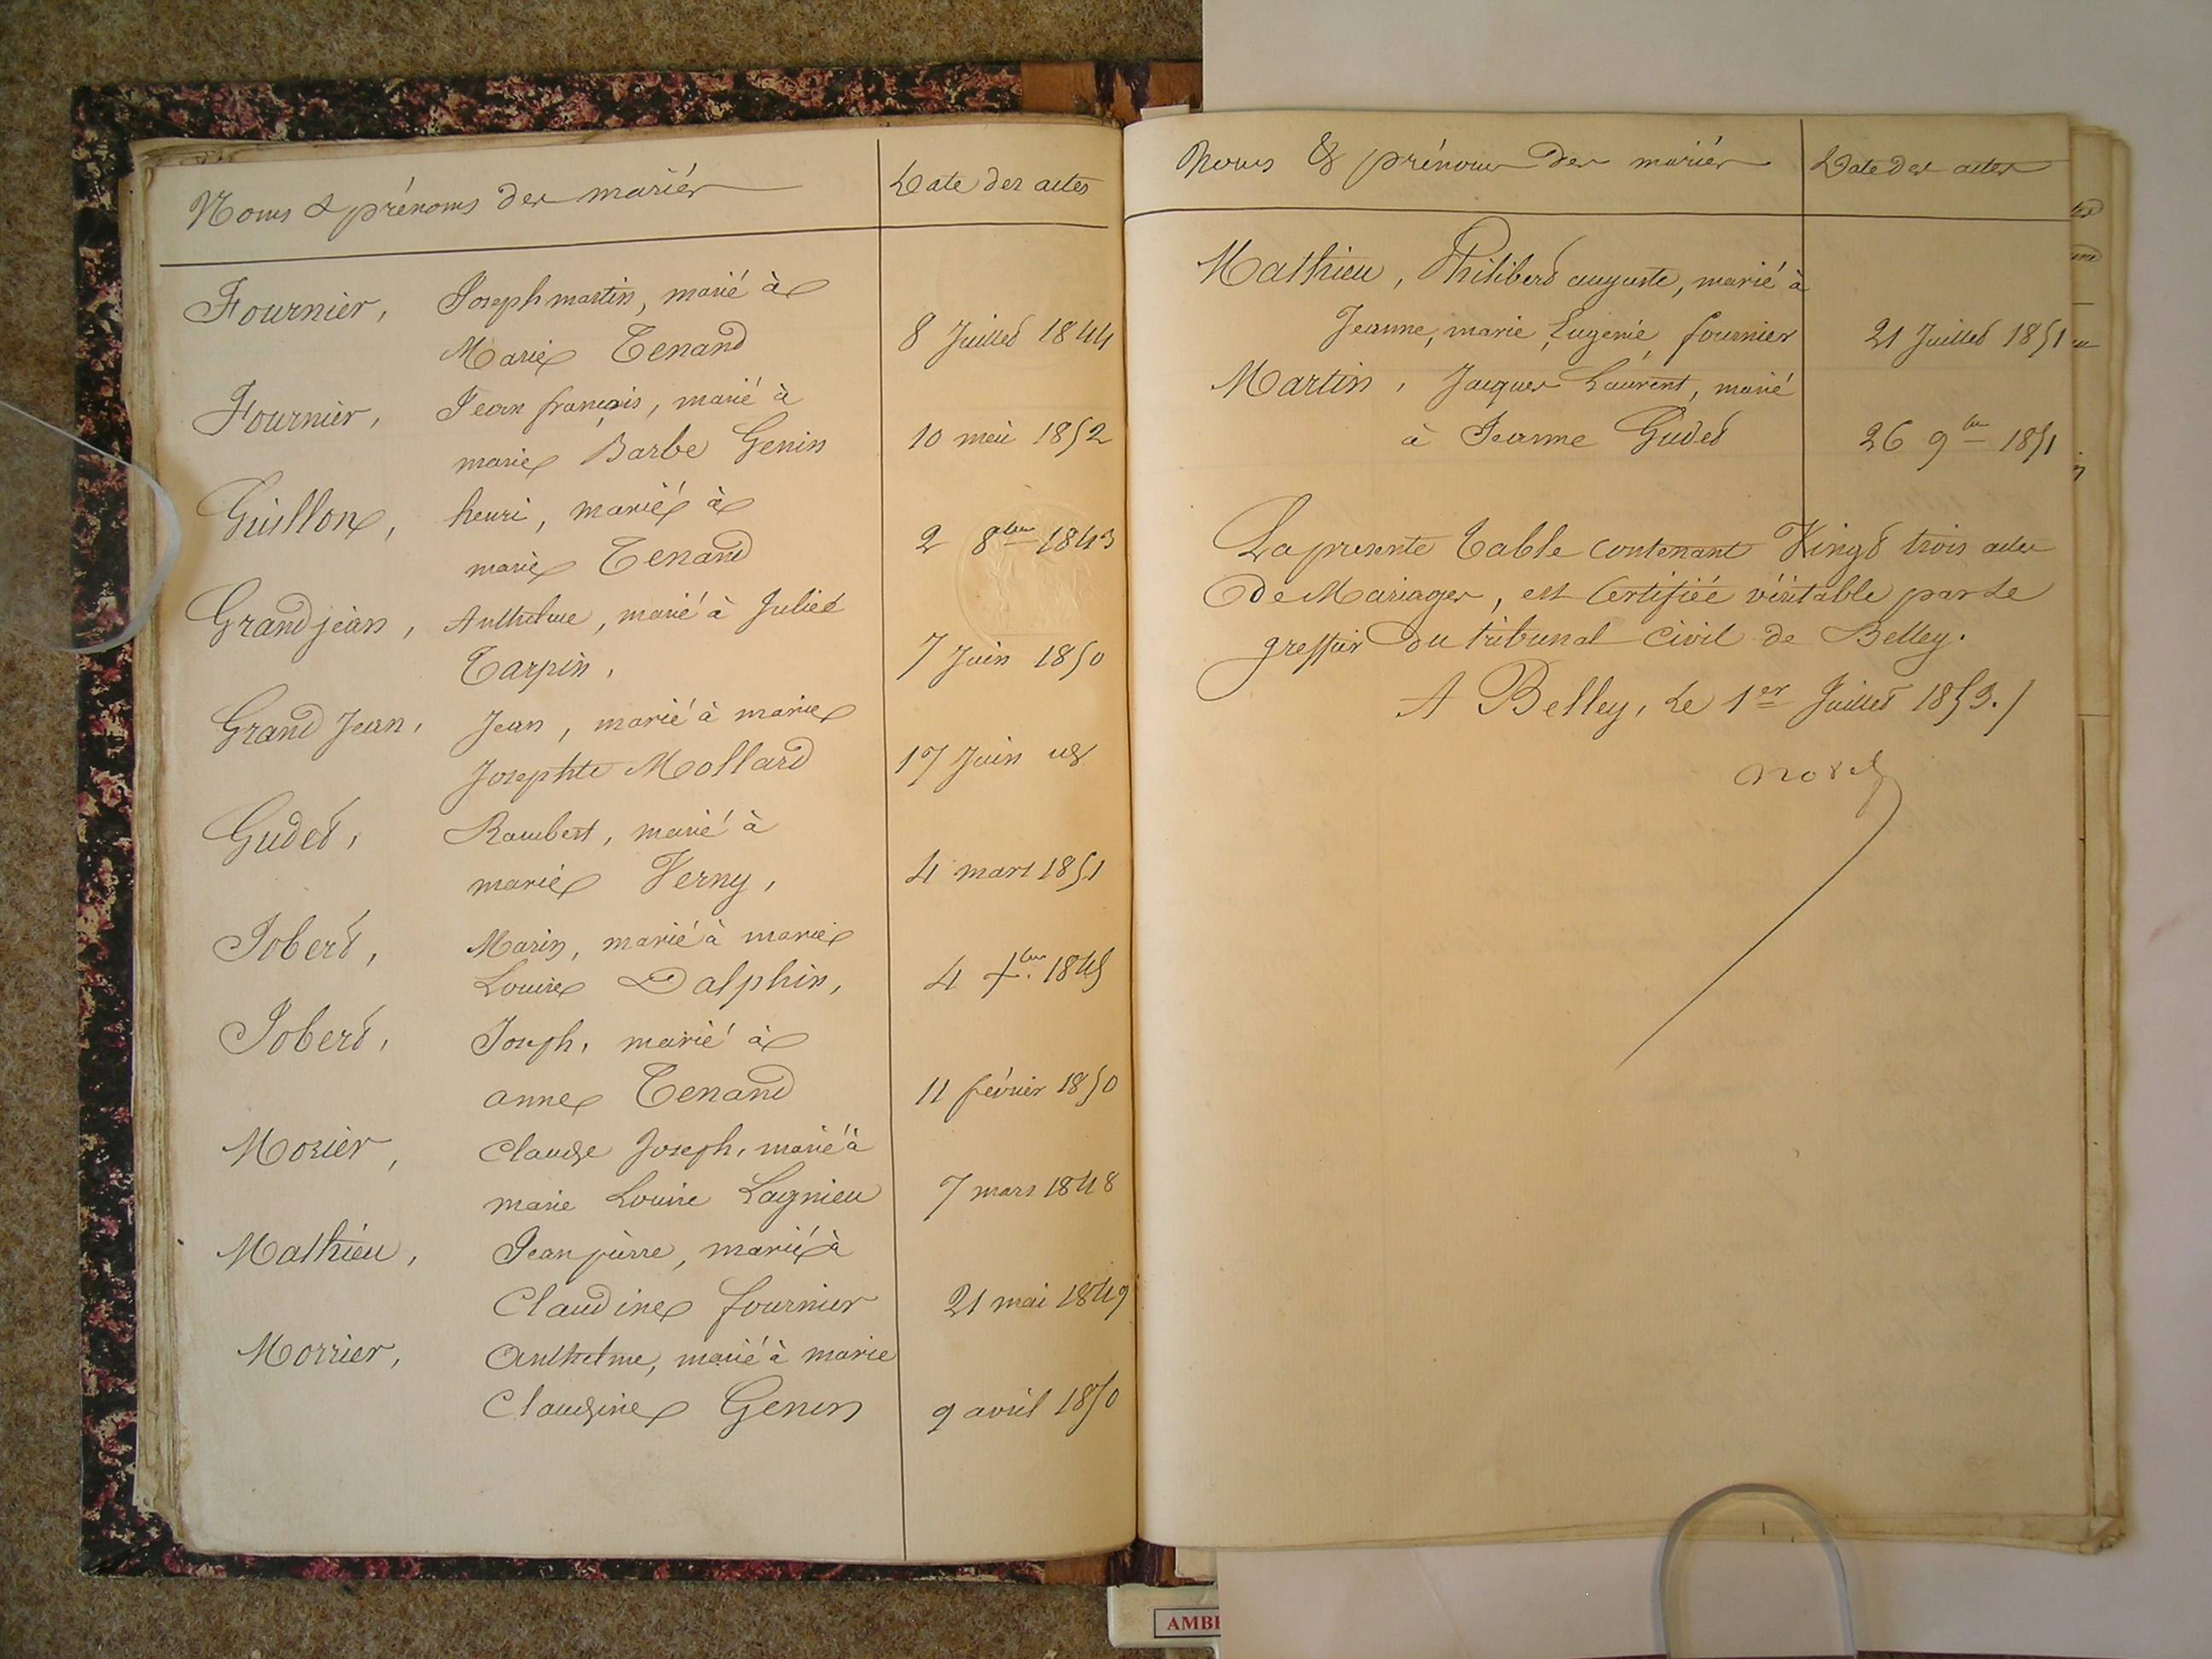 Noms & prénoms des mariés
Date des actes
Fournier, Joseph martin, marié à
Marie Tenand
8 Juillet 1844
Fournier, Jean françois, marié à
marie Barbe Genin
10 mai 1852
Guillon, henri, marié à
marie Tenand
2 8bre 1843
Grandjean, Anthelme, marié à Julie
Tarpin,
7 Juin 1850
Grand Jean, Jean, marié à marie
Josephte Mollard
17 Juin
Gudet, Rambert, marié à
marie Verny,
4 mars 1851
Jobert, Marin, marié à marie
Louise Dalphin,
4 7bre 1845
Jobert, Joseph, marié à
anne Tenand
11 février 1850
Mozier, Claude Joseph, marié à
marie Louise Lagnieu
7 mars 1848
Mathieu, Jean pierre, marié à
Claudine fournier
21 mai 1849
Morrier, Anthelme, marié à marie
Claudine Genin
9 avril 1850
Noms & prénoms des mariés
Date des actes
Mathieu, Philibert auguste, marié à
Jeanne, marie Eugenie fournier
21 Juillet 1851
Martin, Jacques Laurent, marié
à Jeanne Gudet
26 9bre 1851
La presente table contenant Vingt trois actes
de Mariages, est Certifiée véritable par le
greffier du tribunal Civil de Belley.
A Belley, le 1er Juillet 1853./
AMB